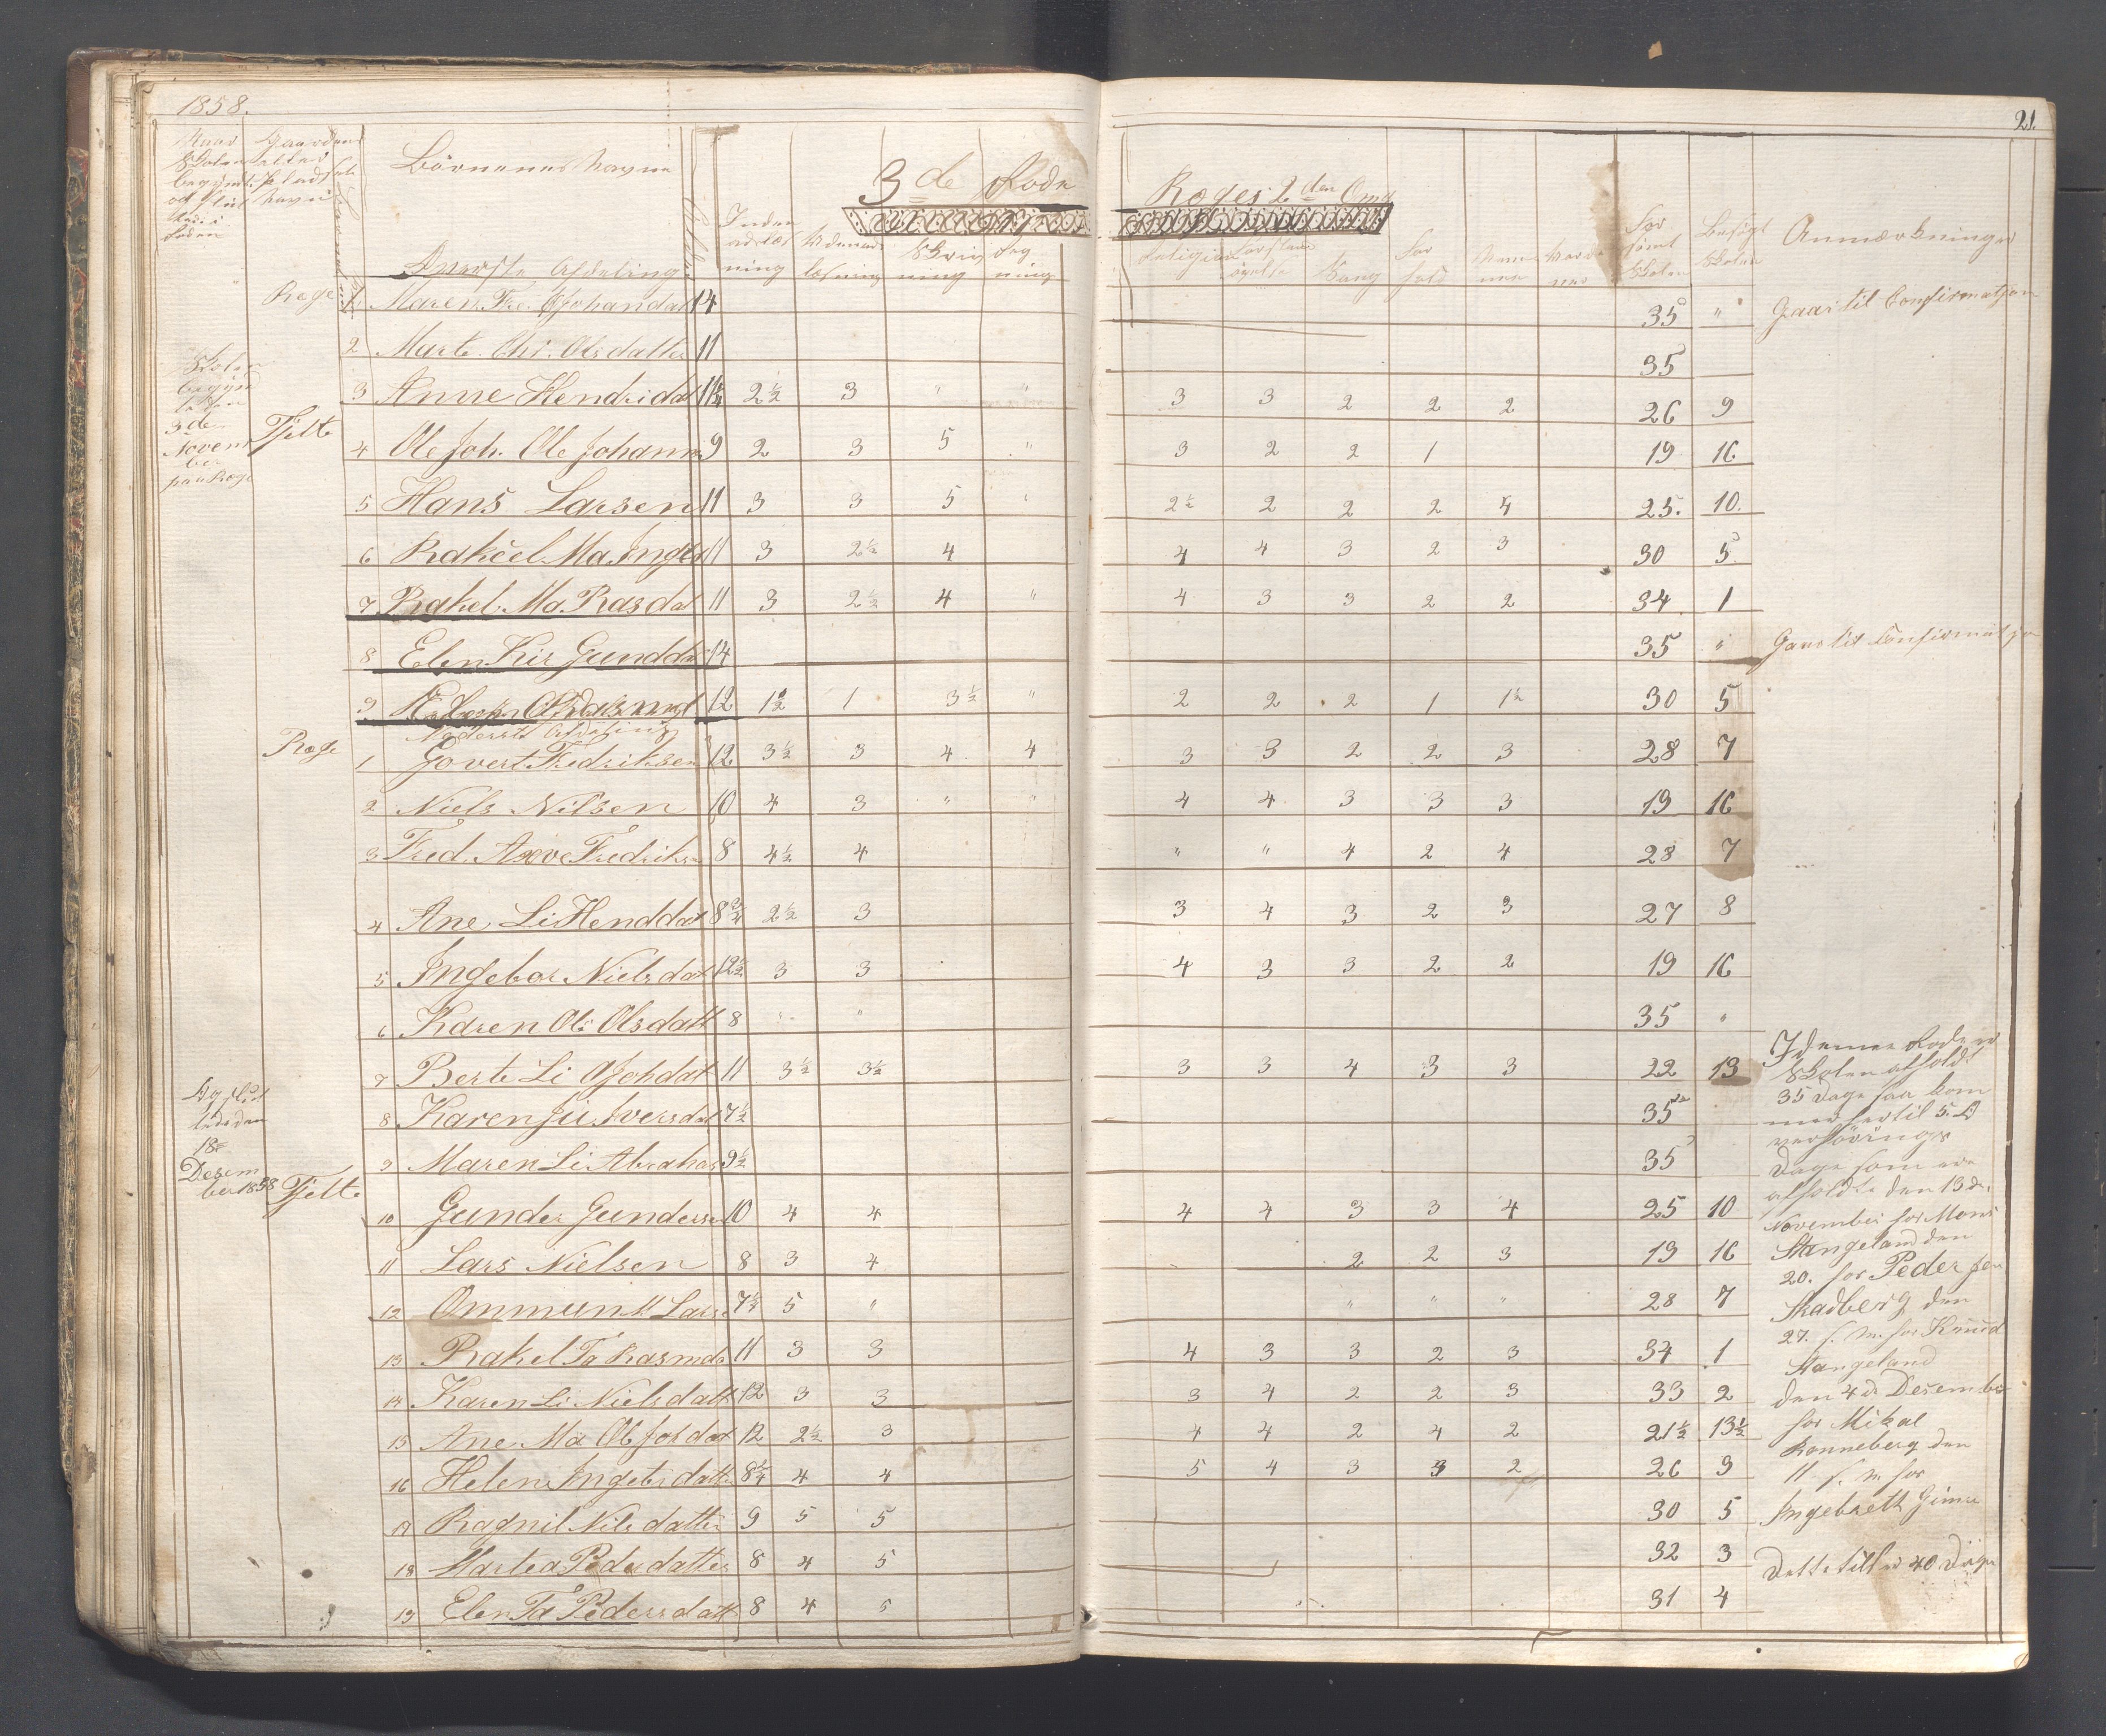 1858.
21.
3de Rode
Roges 2den Omg
Naar Skolen begyndt og slut
Gaardens eller Pladsets Navn
Børnenes Navne
Inden adlæsning
Udenadlæsning
Skrivning
Regning
Religion
Forstand
Sang
Forhold
Forsømt Skolen
Besøgt Skolen
Anmærkninger
Øverste Afdeling
Roge 1 Maren Fre. Johandat 14 35 " Gaar til Confirmatjon
2 Marte Chr. Olsdatter 11 35
Skolen begyndte den 3de November paa Roge
3 Anne Hendridat 11 2½ 3 " " 3 3 2 2 2 26 9
Tjelte 4 Ole Joh. Ole Johann 9 2 3 5 " 3 2 2 1 19 16
5 Hans Larsen 11 3 3 5 2½ 2 2 2 4 25. 10.
6 Rakel Ma. Ingb 11 3 2½ 4 4 4 3 2 3 30 5
7 Rakel Ma Rasdat 11 3 2½ 4 " 4 3 3 2 2 34 1
8 Elen Kir Gunddat 14 35 " Gaar til Confirmatjon
9 12 1½ 1 3½ " 2 2 2 1 1½ 30 5
Nederste Afdeling
Roge 1 Govert Fredriksen 12 3½ 3 4 4 3 3 2 2 3 28 7
2 Niels Nilsen 10 4 3 " " 4 4 3 3 3 19 16
3 Fred. Fredriks 8 4½ 4 " " 4 2 4 28 7
4 Ane Li Henddat 8¾ 2½ 3 3 4 3 2 3 27 8
5 Ingebor Nielsdat 12½ 3 3 4 3 3 2 2 19 16
6 Karen Ol. Olsdatt 8 " " 35 "
7 Berte Li Johdat 11 3½ 3½ 3 3 4 3 3 22 13
8 Karen Ju. Iversdat 7½ 35
9 Maren Li Abraha 9½ 35
Og sluttedes den 18de Desember 1858
Tjelte 10 Gunder Gunderse 10 4 4 4 4 3 3 4 25 10
11 Lars Nielsen 8 3 4 2 2 3 19 16
12 Ommun M Lars 7½ 5 " " " " 28 7
13 Rakel Ta Rasmda 11 3 3 4 3 3 2 3 34 1
14 Karen Li Nielsdatt 12 3 3 3 4 2 2 3 33 2
15 Ane Ma Ol Johdat 12 2½ 3 4 4 2 4 2 21½ 13½
16 Helene Ingebrdatter 8¾ 4 4 5 4 3 3 2 26 9
17 Ragnil Nilsdatter 9 5 5 30 5
18 Martea Pedersdatter 8 4 5 32 3
19 Elen Ta Pedersdatt 8 4 5 31 4
I denne Rode er
Skolen afholdt
35 Dage saa kom
mer hertil 5.
verhørings
Dage som ere
afholdte den 13de
November for Mons
Stangeland den
20. for Peder
Skadberg den
27. s. m. for Knud
Stangeland
den 4de Desember
for Mikal
Ronneberg den
11 s. m. for
Ingebreth Gimre
Dette tilsa 40 Dage